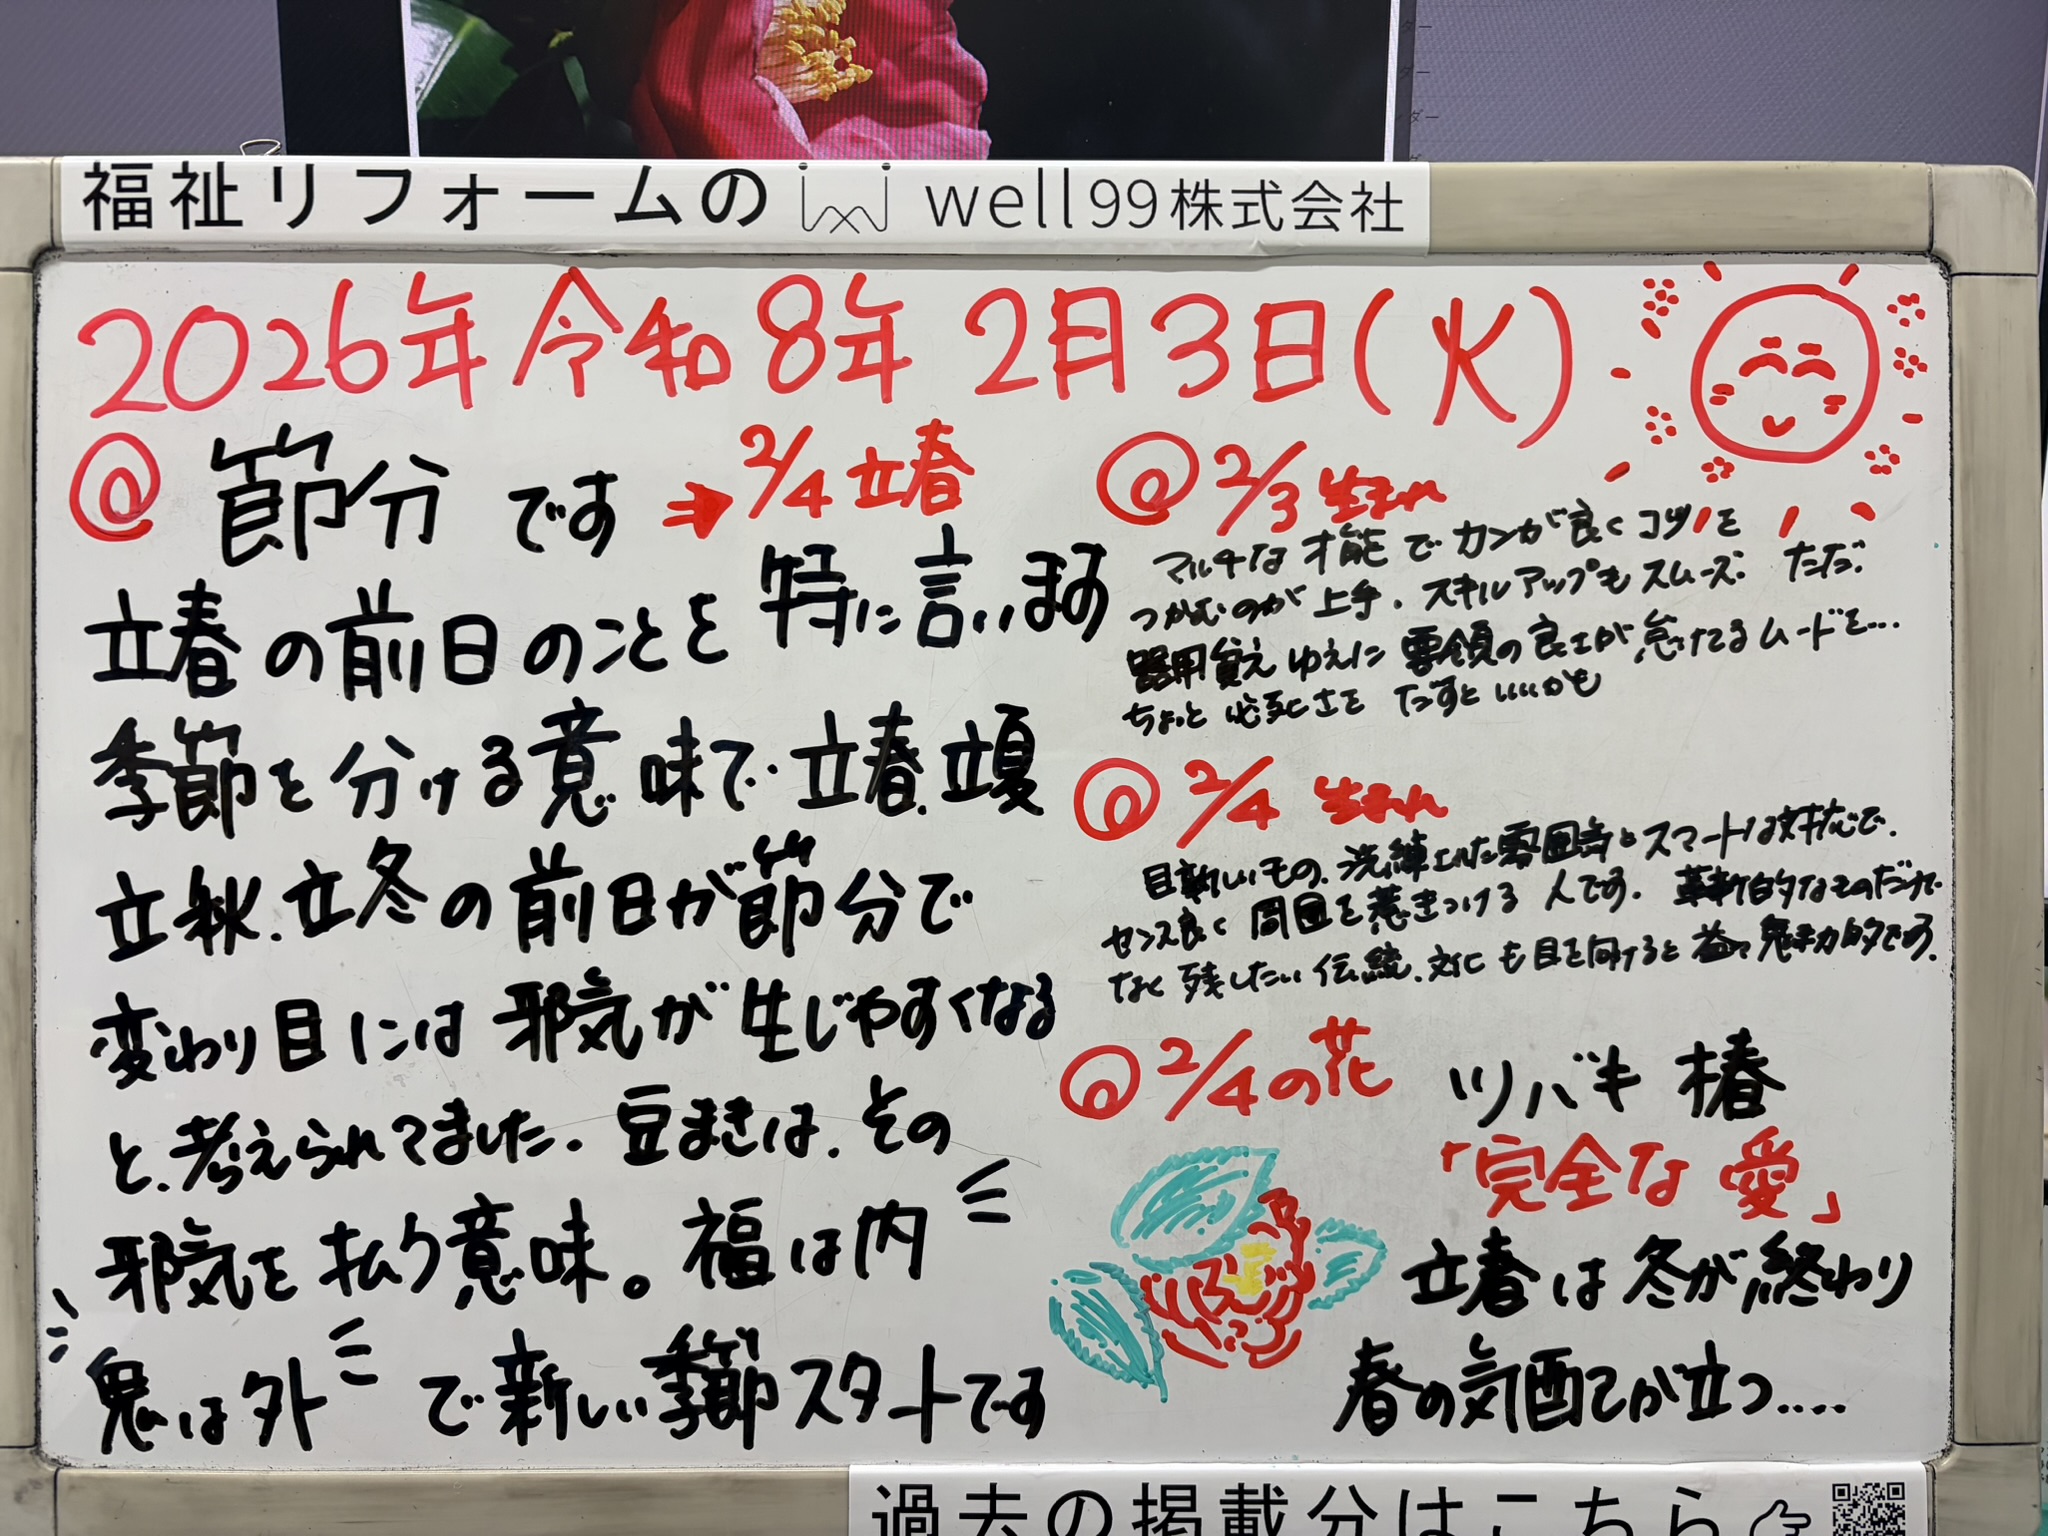 福祉リフォームの well99株式会社
2026年 令和8年 2月3日(火)
@ 節分です ⇒ 2/4 立春
立春の前日のことを特に言います
季節を分ける意味で.立春.立夏
立秋.立冬の前日が節分で
変わり目には邪気が生じやすくなる
と.考えられてました.豆まきは.その
邪気を払う意味。福は内
鬼は外 で新しい季節スタートです
@ 2/3 生まれ
マルチな才能でカンが良くコツを
つかむのが上手.スキルアップもスムーズ.ただ.
器用貧え ゆえに要領の良さが怠けてるムードを...
ちょっと必死さをだすといいかも
@ 2/4 生まれ
目新しいもの.洗練された雰囲気とスマートな対応で.
センス良く周囲を惹きつける人です.革新的なものだけで
なく残したい伝統.文化にも目を向けると益々魅力的です.
@ 2/4の花 ツバキ 椿
「完全な愛」
立春は冬が終わり
春の気配てが立つ....
過去の掲載分はこちら